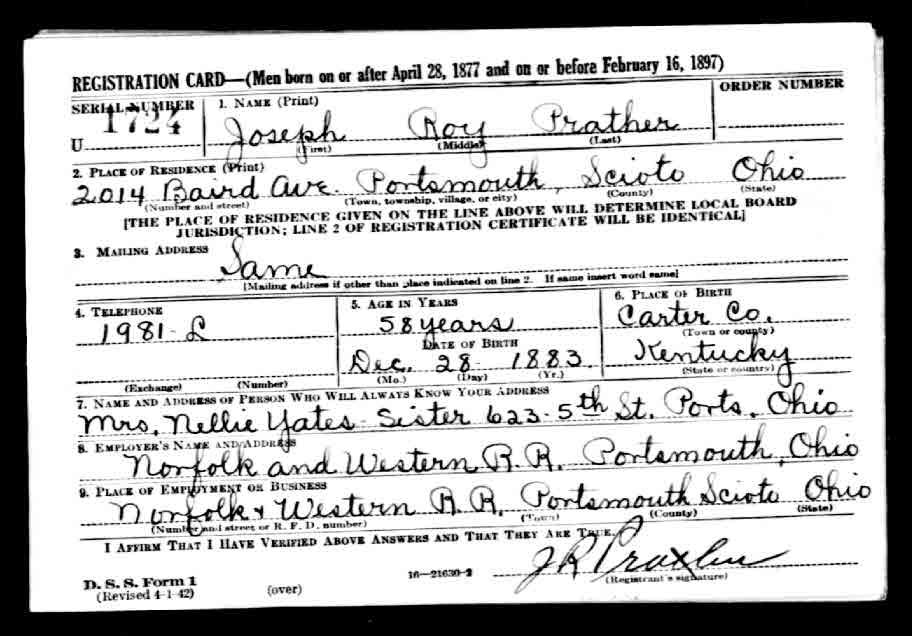 REGISTRATION CARD—(Men born on or after April 28, 1877 and on or before February 16, 1897)
SERIAL NUMBER
1. NAME (Print)
ORDER NUMBER
U 1724
Joseph Roy Prather
(First) (Middle) (Last)
2. PLACE OF RESIDENCE (Print)
2014 Baird Ave. Portsmouth, Scioto Ohio
(Number and street) (Town, township, village, or city) (County) (State)
[THE PLACE OF RESIDENCE GIVEN ON THE LINE ABOVE WILL DETERMINE LOCAL BOARD
JURISDICTION; LINE 2 OF REGISTRATION CERTIFICATE WILL BE IDENTICAL]
3. MAILING ADDRESS
Same
[Mailing address if other than place indicated on line 2. If same insert word same]
4. TELEPHONE
1981-L
(Exchange) (Number)
5. AGE IN YEARS
58 years
DATE OF BIRTH
Dec. 28 1883.
(Mo.) (Day) (Yr.)
6. PLACE OF BIRTH
Carter Co.
(Town or county)
Kentucky
(State or country)
7. NAME AND ADDRESS OF PERSON WHO WILL ALWAYS KNOW YOUR ADDRESS
Mrs. Nellie Yates - Sister 623-5th St. Ports. Ohio
8. EMPLOYER'S NAME AND ADDRESS
Norfolk and Western R.R. Portsmouth, Ohio
9. PLACE OF EMPLOYMENT OR BUSINESS
Norfolk & Western R.R. Portsmouth Scioto Ohio
(Number and street or R. F. D. number) (Town) (County) (State)
I AFFIRM THAT I HAVE VERIFIED ABOVE ANSWERS AND THAT THEY ARE TRUE.
J R Prather
D. S. S. Form 1
(Revised 4-1-42)
(over)
16—21630-2
(Registrant's signature)